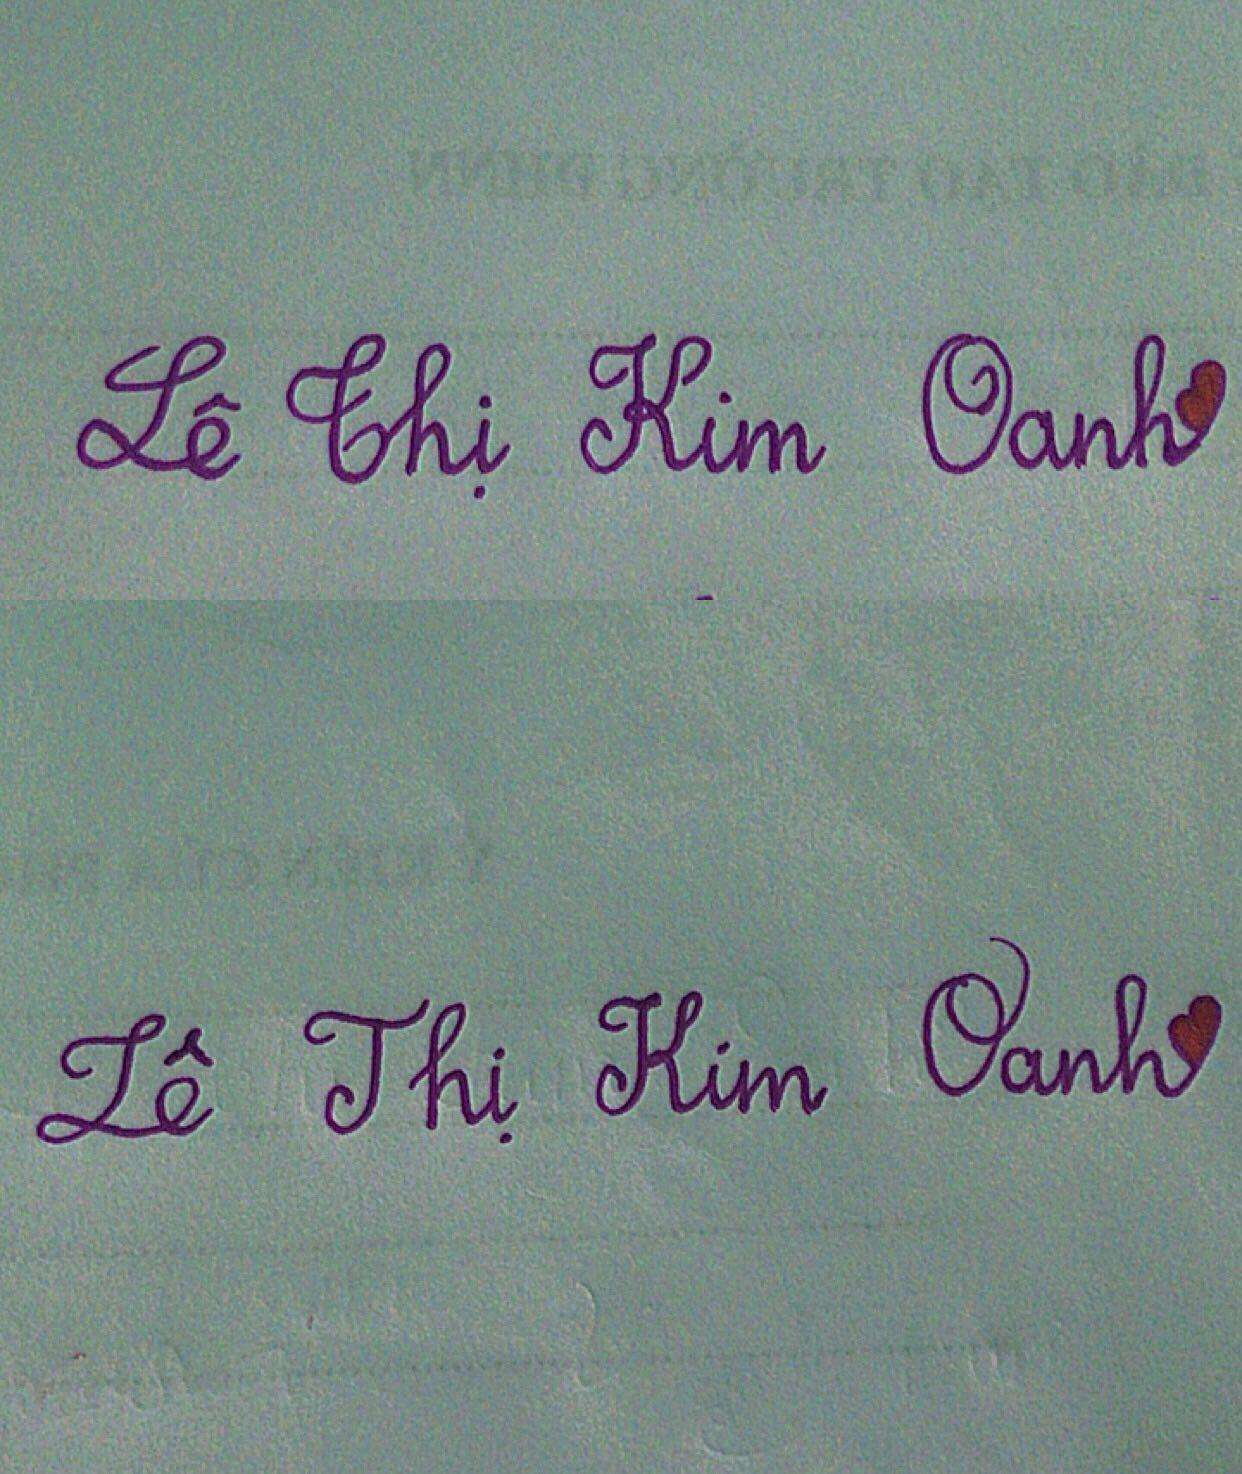 Lê Thị Kim Oanh
Lê Thị Kim Oanh